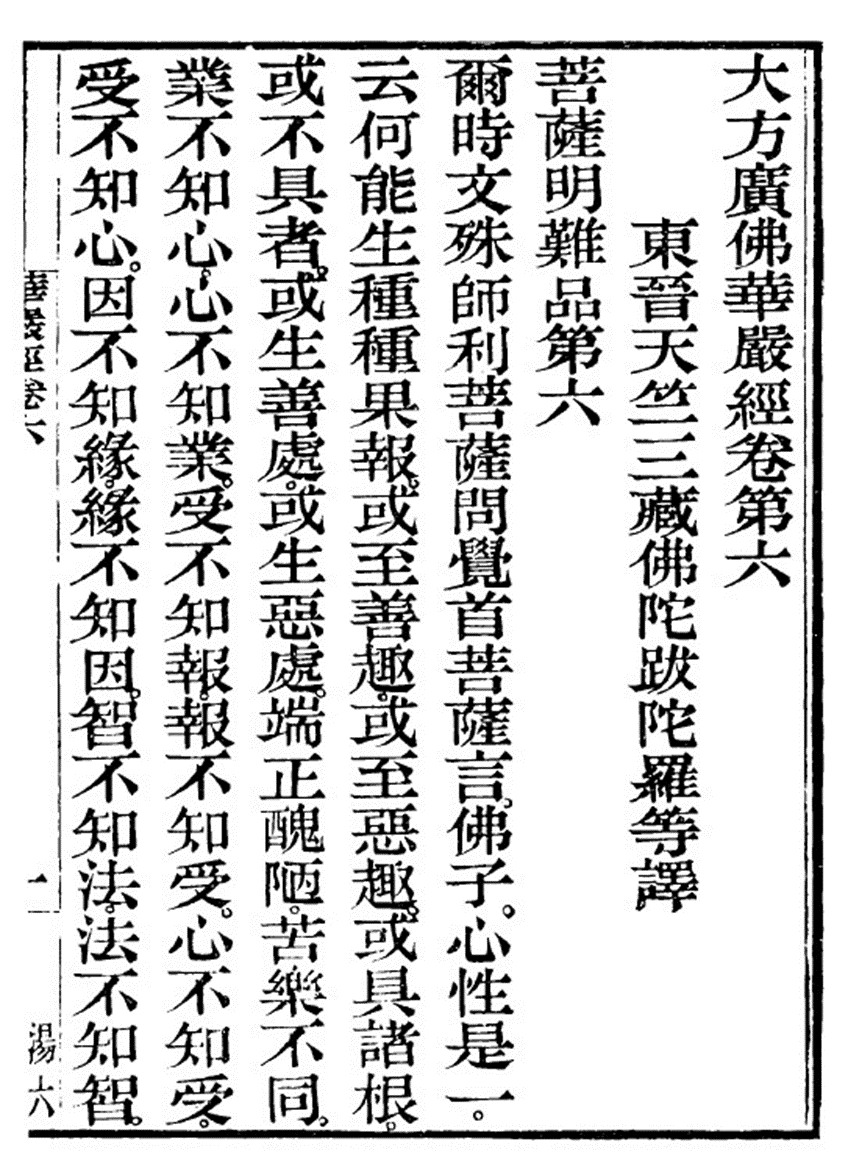 大方廣佛華嚴經卷第六
東晉天竺三藏佛陀跋陀羅等譯
菩薩明難品第六
爾時文殊師利菩薩問覺首菩薩言。佛子。心性是一。
云何能生種種果報。或至善趣。或至惡趣。或具諸根。
或不具者。或生善處。或生惡處。端正醜陋。苦樂不同。
業不知心。心不知業。受不知報。報不知受。心不知受。
受不知心。因不知緣。緣不知因。智不知法。法不知智。
華嚴經卷六
一
湯六